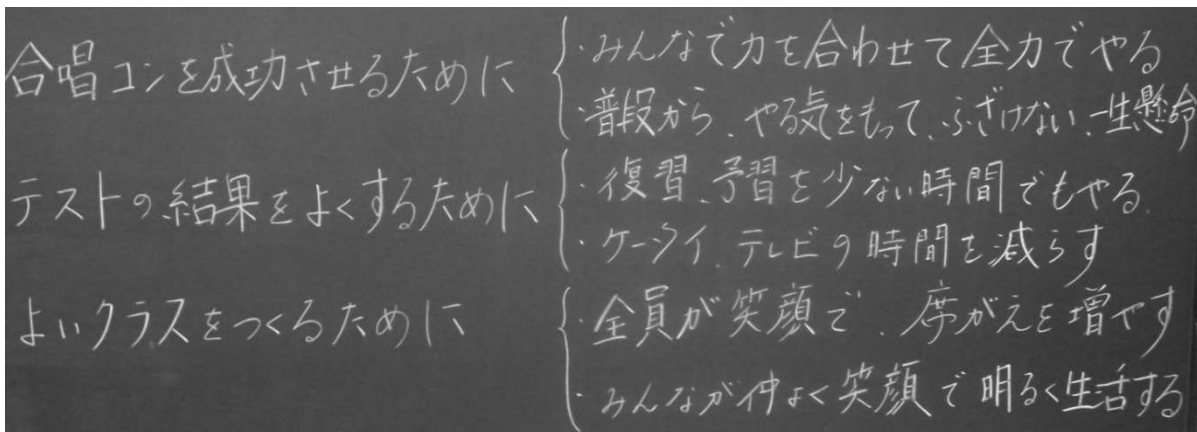 合唱コンを成功させるために
・みんなで力を合わせて全力でやる
・普段から、やる気をもって、ふざけない、一生懸命
テストの結果をよくするために
・復習、予習を少ない時間でもやる
・ケータイ、テレビの時間を減らす
よいクラスをつくるために
・全員が笑顔で、席がえを増やす
・みんなが仲よく笑顔で明るく生活する